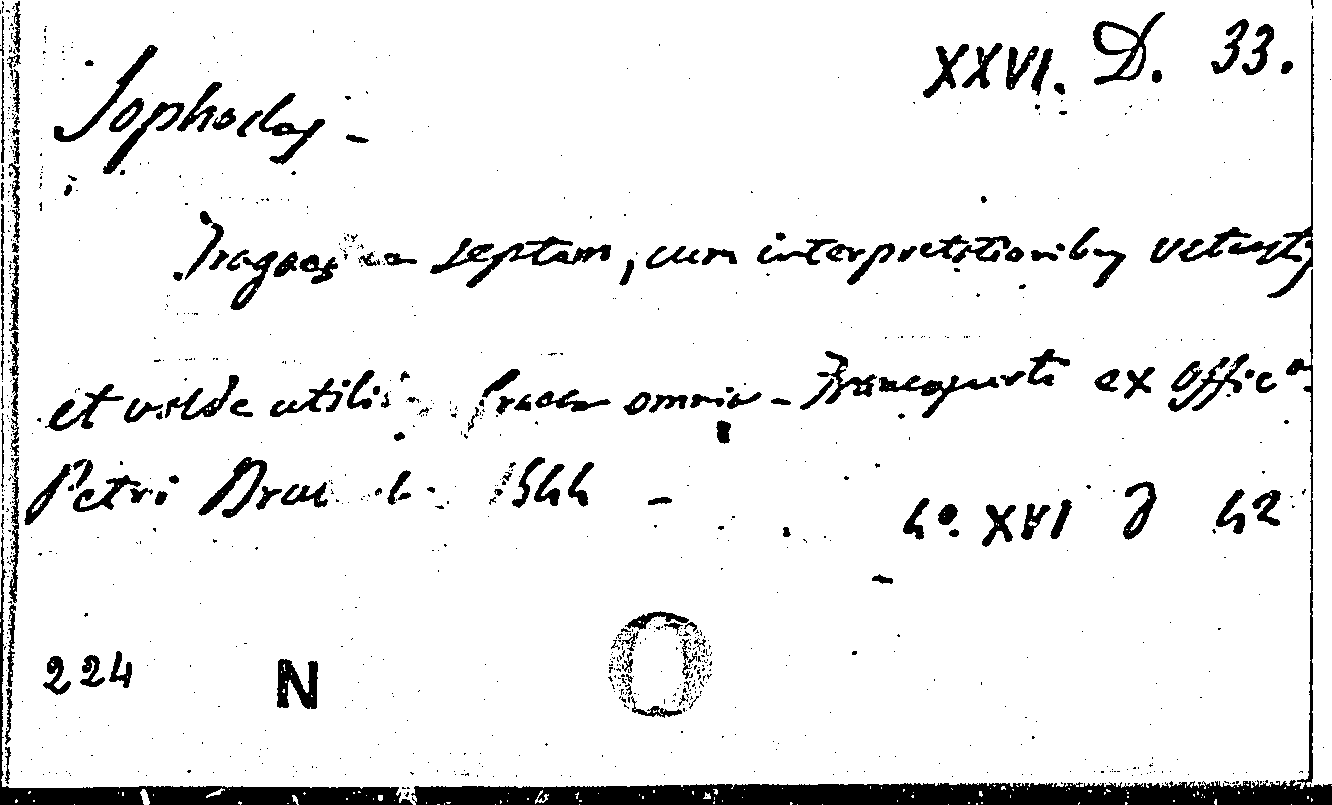 XXVI. D. 33.
Sophocles -
Tragoediae septem, cum interpretationibus vetustis
et valde utilis graeca omnia - Francofurti ex offic.ª
Petri 1544 - 4º. XVI D 42
224 N